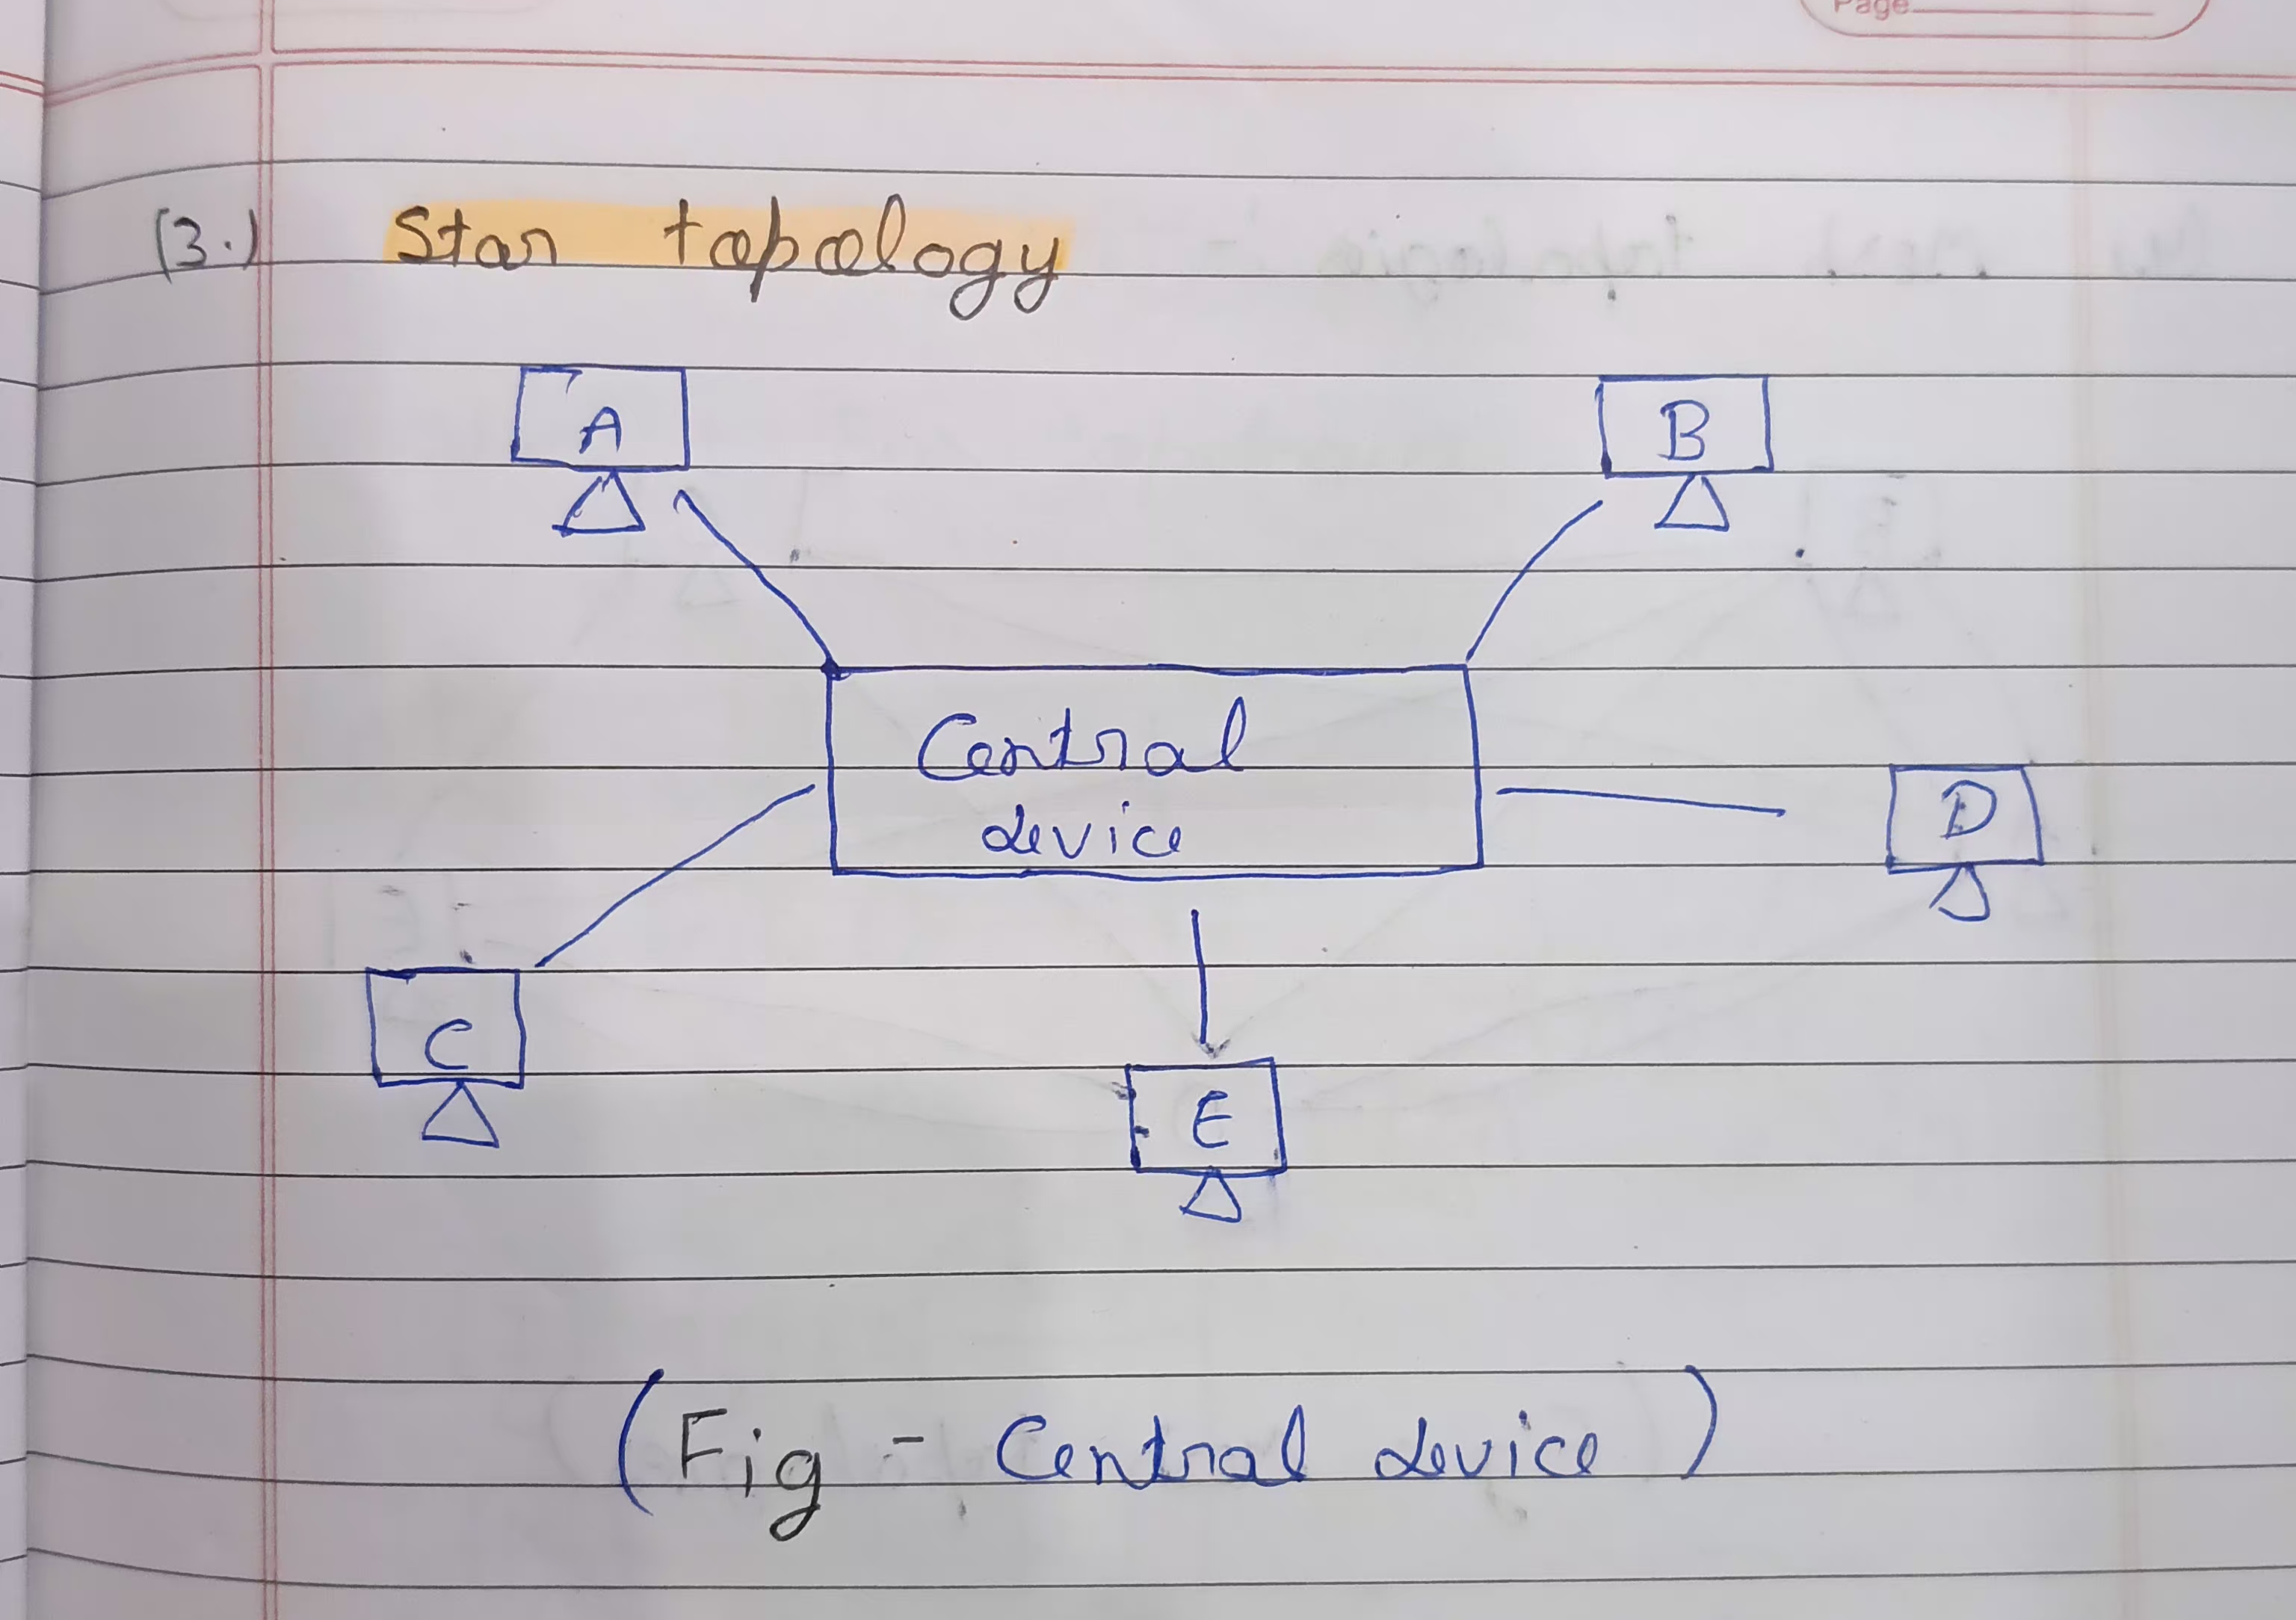 Page
(3.) Star topology
A
B
Central
device
D
C
E
(Fig - Central device)